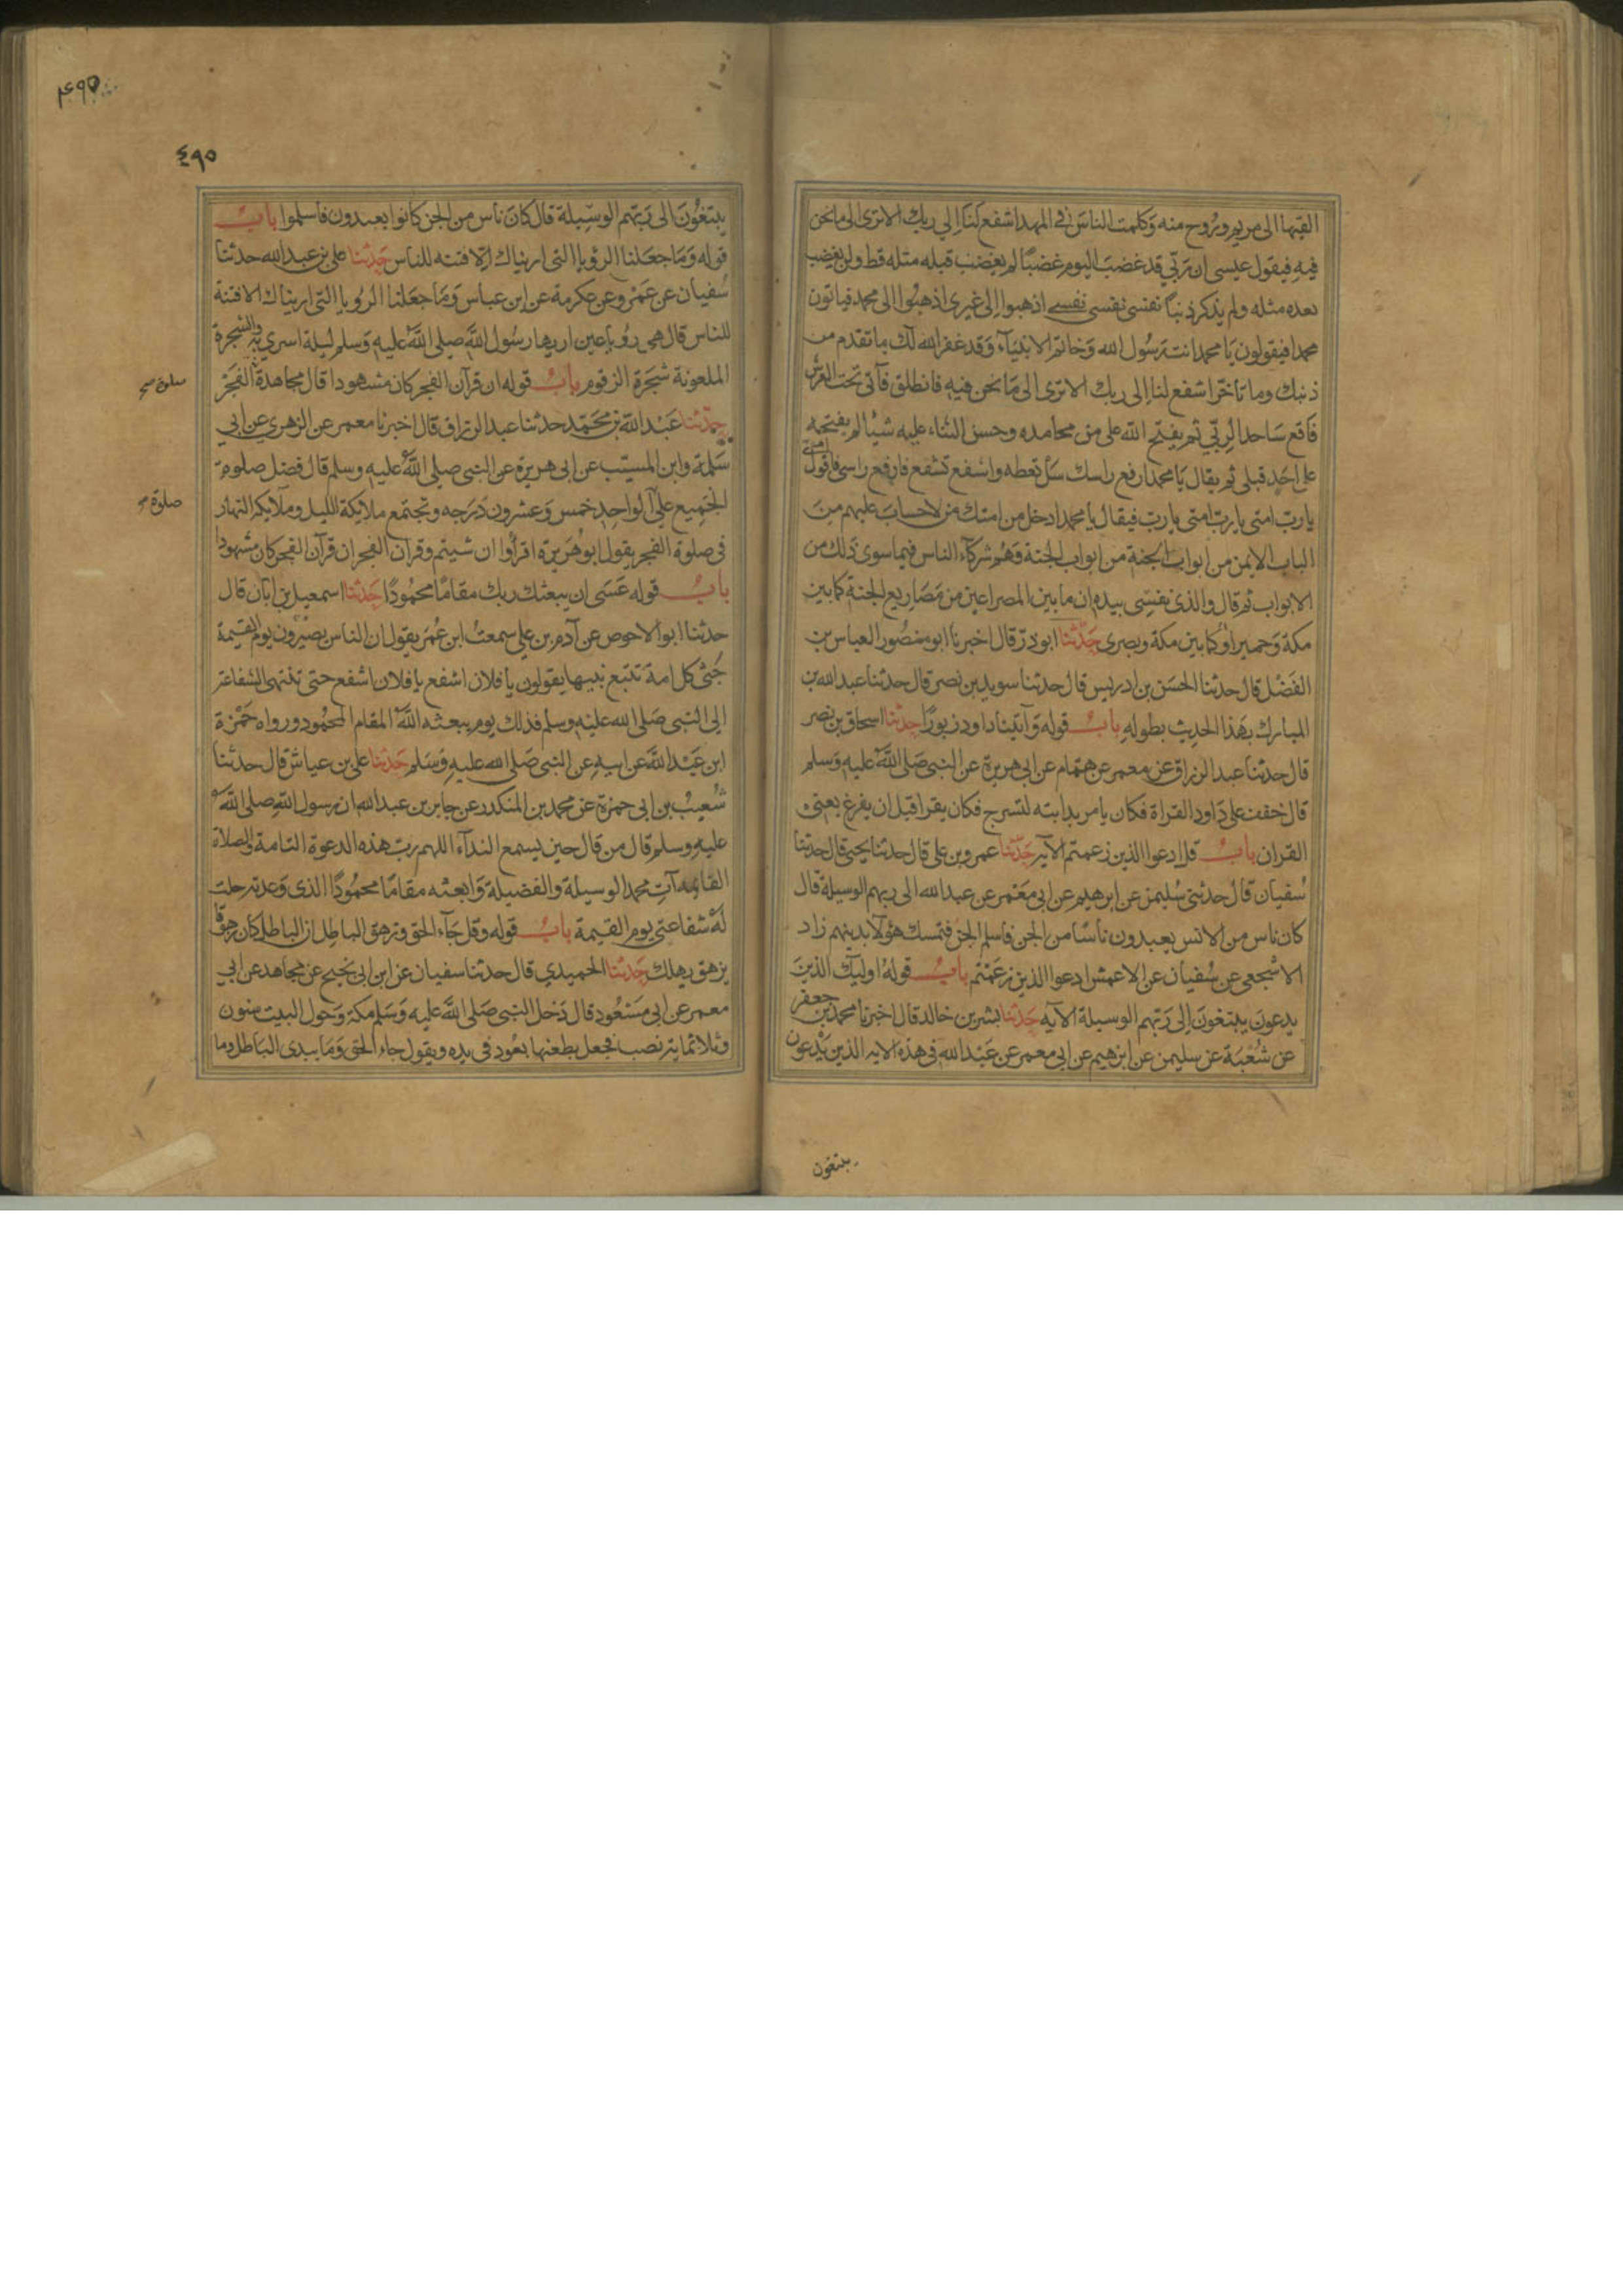 القيها الى مريم وروح منه وكلمت الناس في المهد اشفع لنا الي ربك الا ترى الى ما نحن
فيه فيقول عيسى ان ربي قد غضب اليوم غضبا لم يغضب قبله مثله قط ولن يغضب
بعده مثله ولم يذكر ذنبا نفسي نفسي نفسي اذهبوا الى غيري اذهبوا الى محمد فياتون
محمدا فيقولون يا محمد انت رسول الله وخاتم الانبيآء وقد غفر الله لك ما تقدم من
ذنبك وما تاخر اشفع لنا الى ربك الا ترى الى ما نحن فيه فانطلق فآتي تحت العرش
فاقع ساجدا لربي ثم يفتح الله على من محامده وحسن الثناء عليه شيئا لم يفتحه
على احد قبلى ثم يقال يا محمد ارفع راسك سل تعطه واشفع تشفع فارفع راسى فاقول امتى
يا رب امتى يا رب امتى يا رب فيقال يا محمد ادخل من امتك من لا حساب عليهم من
الباب الايمن من ابواب الجنة وهم شركآء الناس فيما سوى ذلك من
الابواب ثم قال والذى نفسى بيده ان ما بين المصراعين من مصاريع الجنة كما بين
مكة وحمير او كما بين مكة وبصرى حدثنا ابو ذر قال اخبرنا ابو منصور العباس بن
الفضل قال حدثنا الحسن بن ادريس قال حدثنا سويد بن نصر قال حدثنا عبد الله بن
المبارك بهذا الحديث بطوله باب قوله وآتينا داود زبورا حدثنا اسحاق بن نصر
قال حدثنا عبد الرزاق عن معمر عن همام عن ابى هريرة عن النبى صلى الله عليه وسلم
قال خفف على داود القراة فكان يامر بدابته لتسرج فكان يقرا قبل ان يفرغ يعنى
القران باب قل ادعوا الذين زعمتم الآية حدثنا عمرو بن على قال حدثنا يحيى قال حدثنا
سفيان قال حدثنى سليمن عن ابرهيم عن ابى معمر عن عبد الله الى ربهم الوسيلة قال
كان ناس من الانس يعبدون ناسا من الجن فاسلم الجن فتمسك هؤلآ بدينهم زاد
الاشجعى عن سفيان عن الاعمش ادعوا الذين زعمتم باب قوله اوليك الذين
يدعون يبتغون الى ربهم الوسيلة الآيه حدثنا بشر بن خالد قال اخبرنا محمد بن جعفر
عن شعبة عن سليمن عن ابرهيم عن ابى معمر عن عبد الله فى هذه الايه الذين يدعون
يبتغون
٤٩٥
٤٩٥
يبتغون الى ربهم الوسيلة قال كان ناس من الجن كانوا يعبدون فاسلموا باب
قوله وما جعلنا الرؤيا التى اريناك الا فتنه للناس حدثنا على بن عبد الله حدثنا
سفيان عن عمرو عن عكرمة عن ابن عباس وما جعلنا الرويا التى اريناك الا فتنة
للناس قال هى رويا عين اريها رسول الله صلى الله عليه وسلم ليلة اسري به والشجرة
الملعونة شجرة الزقوم باب قوله ان قرآن الفجر كان مشهودا قال مجاهد الفجر
صلوة صح
حدثنا عبد الله بن محمد حدثنا عبد الرزاق قال اخبرنا معمر عن الزهري عن ابي
سلمة وابن المسيب عن ابى هريرة عن النبى صلى الله عليه وسلم قال فضل صلوة
الجميع على الواحد خمس وعشرون درجه وتجتمع ملايكة الليل وملايكه النهار
صلوة صح
فى صلوة الفجر يقول ابو هريرة اقرأوا ان شيتم وقران الفجر ان قرآن الفجر كان مشهودا
باب قوله عسى ان يبعثك ربك مقاما محمودا حدثنا اسمعيل بن ابان قال
حدثنا ابو الاحوص عن آدم بن علي سمعت ابن عمر يقول ان الناس يصيرون يوم القيمة
جثى كل امة تتبع نبيها يقولون يا فلان اشفع يا فلان اشفع حتى تنتهى الشفاعة
الى النبى صلى الله عليه وسلم فذلك يوم يبعثه الله المقام المحمود ورواه حمزة
ابن عبد الله عن ابيه عن النبى صلى الله عليه وسلم حدثنا على بن عياش قال حدثنا
شعيب بن ابى حمزة عن محمد بن المنكدر عن جابر بن عبد الله ان رسول الله صلى الله
عليه وسلم قال من قال حين يسمع الندآء اللهم رب هذه الدعوة التامة والصلاة
القايمه آت محمد الوسيلة والفضيلة وابعثه مقاما محمودا الذى وعدته حلت
له شفاعتى يوم القيمة باب قوله وقل جآء الحق وزهق الباطل ان الباطل كان زهوقا
يزهق يهلك حدثنا الحميدي قال حدثنا سفيان عن ابن ابى نجيح عن مجاهد عن ابي
معمر عن ابى مسعود قال دخل النبى صلى الله عليه وسلم مكة وحول البيت ستون
وثلاثماية نصب فجعل يطعنها بعود فى يده ويقول جاء الحق وما يبدى الباطل وما